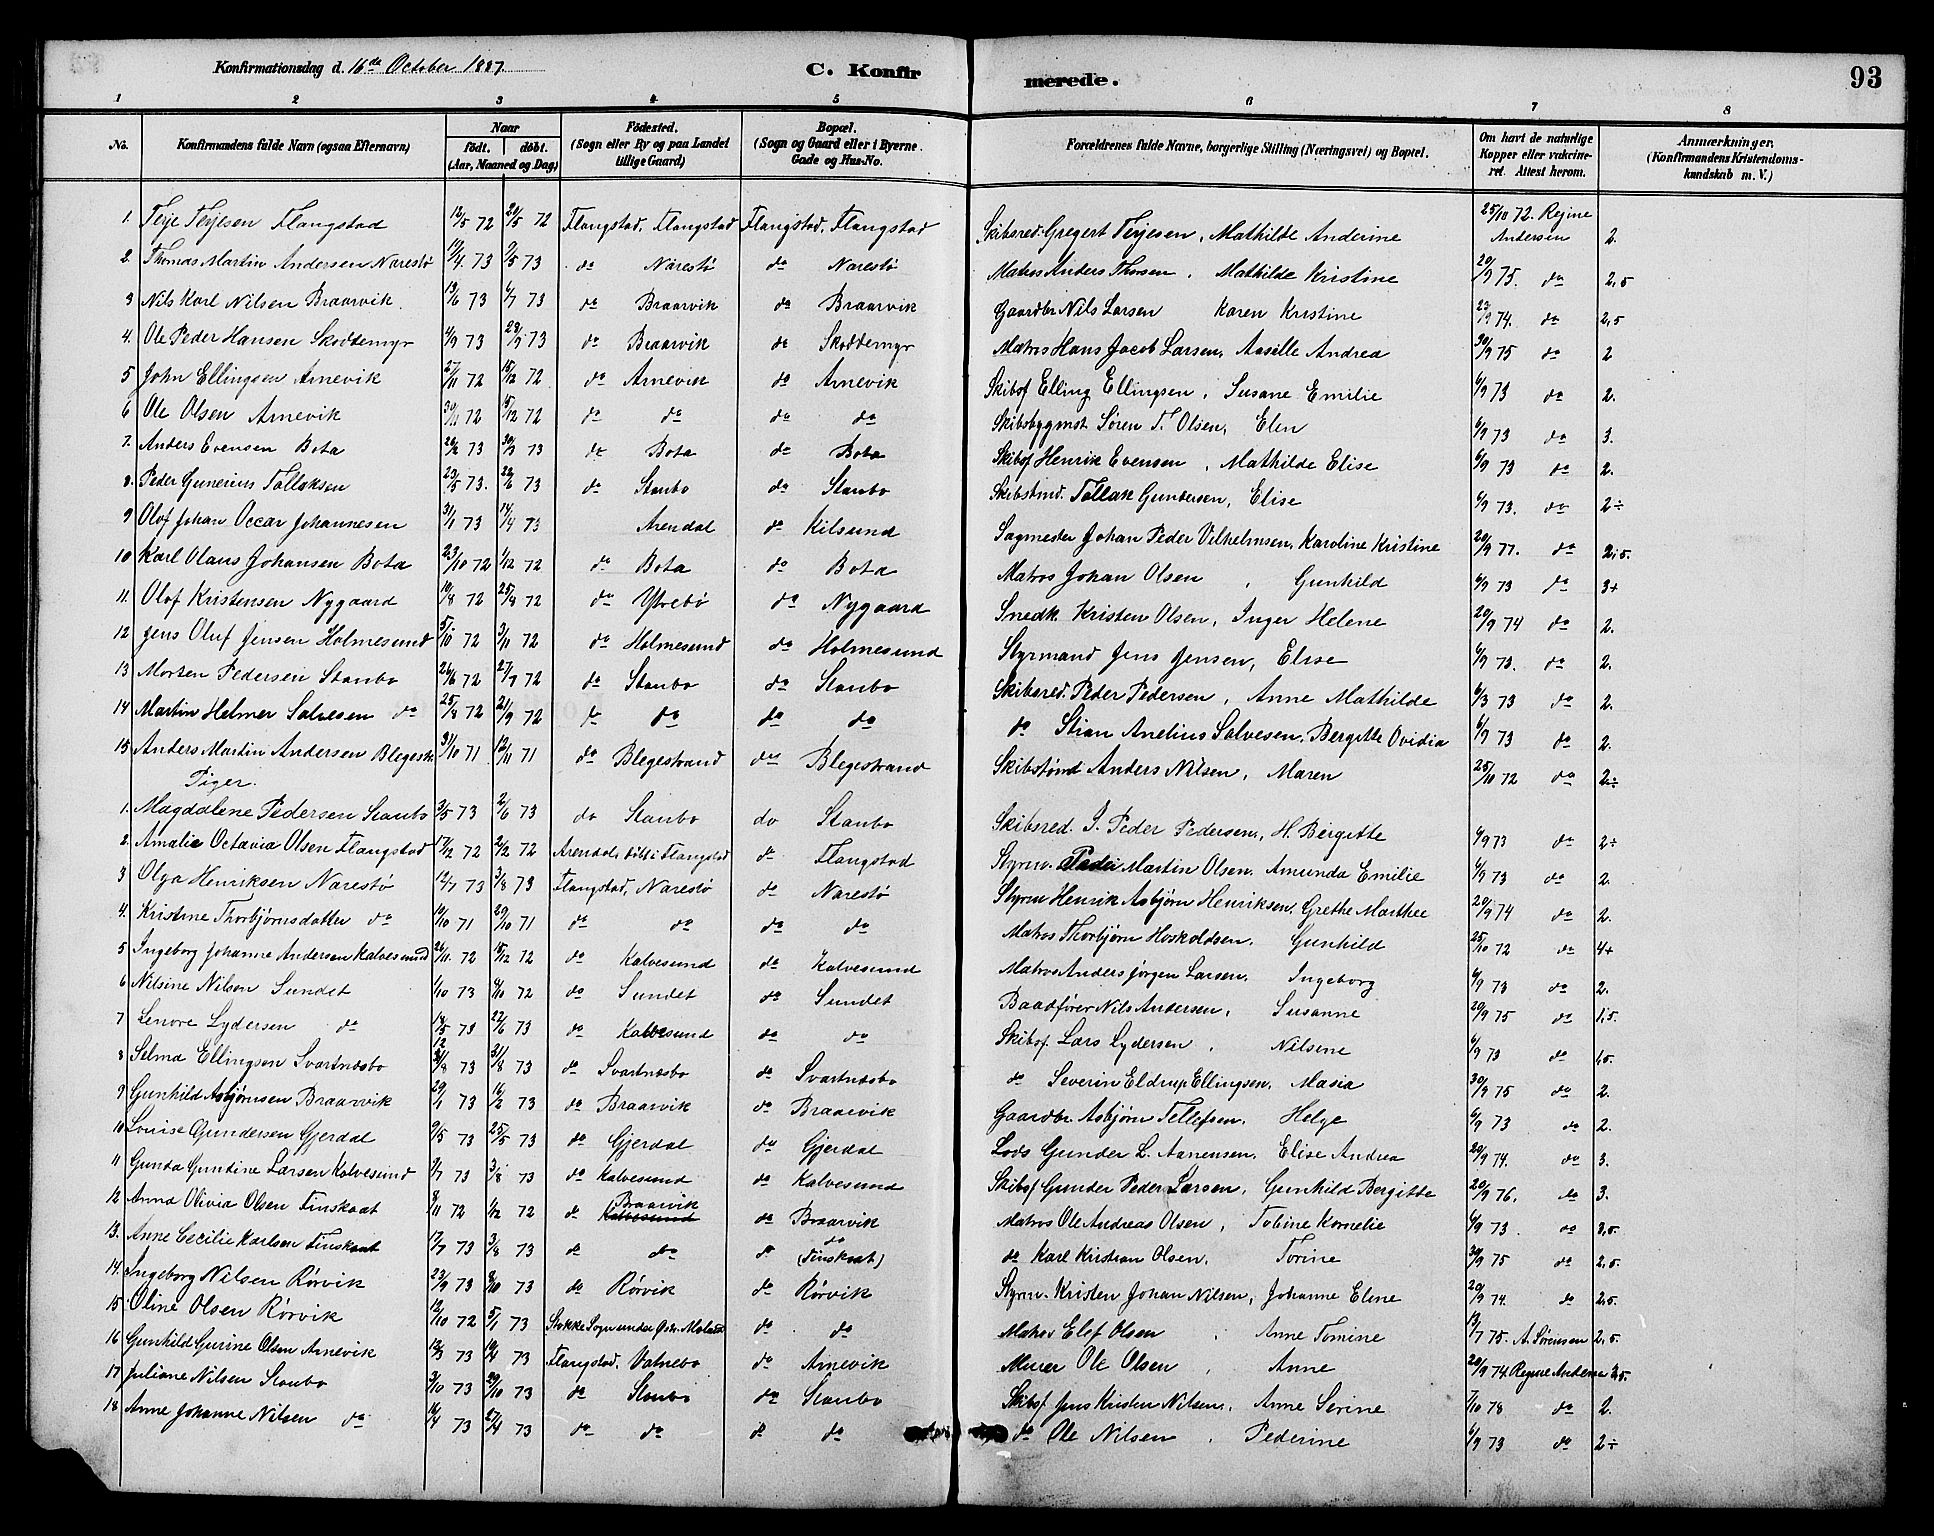 Konfirmationsdag d. 16de October 1887. C. Konfirmerede. 93
1 2 3 4 5 6 7 8
No. Konfirmandens fulde Navn (ogsaa Efternavn) Naar født. døbt. (Aar, Maaned og Dag) Fødested. (Sogn eller By og paa Landet tillige Gaard) Bopæl. (Sogn og Gaard eller i Byerne Gade og Hus-No. Forældrenes fulde Navne, borgerlige Stilling (Næringsvei) og Bopæl. Om havt de naturlige Kopper eller vakcineret. Attest herom. Anmærkninger. (Konfirmandens Kristendomskundskab m. V.)
1. Terje Terjesen Flangstad 12/5 72 20/5 72 Flangstad, Flangstad Flangstad, Flangstad Skibsred. Gregert Terjesen, Mathilde Anderine 25/10 72. Regine Andersen 2.
2. Thomas Martin Andersen Narestø 19/4 73 2/5 73 do Narestø do Narestø Matros Anders Thorsen, Mathilde Kristine 20/9 75. do 2,5
3 Nils Karl Nilsen Braarvik 13/6 73 6/7 73 do Braarvik do Braarvik Gaardbr Nils Larsen Karen Kristine 22/9 74. do 2,5
4. Ole Peder Hansen Skoddemyr 4/9 73 28/9 73 do Braarvik do Skoddemyr Matros Hans Jacob Larsen, Aasille Andrea 30/9 75 do 2
5 John Ellingsen Arnevik 27/11 72 15/12 72 do Arnevik do Arnevik Skibsf Elling Ellingsen, Susane Emilie 6/9 73 do 2.
6 Ole Olsen Arnevik 30/11 72 15/12 72 do do do do Skibsbygmst Søren T. Olsen, Elen 6/9 73 do 3.
7. Anders Evensen Bota 20/2 73 30/3 73 do Bota do Bota Skibsf Henrik Evensen, Mathilde Elise 6/9 73 do 2.
8. Peder Gunerius Tallaksen 23/5 73. 22/6 73 do Staubo do Staubo Skibstmd. Tallak Gundersen, Elise 6/9 73. do 2÷
9 Olof Johan Occar Johannesen 31/1 73 14/4 73 Arendal do Kilsund Sagmester Johan Peder Vilhelmsen, Karoline Kristine 20/9 77. do 2,5.
10 Karl Olaus Johansen Bota 23/10 72 1/12 72 do Bota do Bota Matros Johan Olsen, Gunhild 6/9 73 do 3+
11. Olof Kristensen Nygaard 10/8 72 25/8 72 do Ytrebø do Nygaard Snedk. Kristen Olsen, Inger Helene 20/9 74 do 2.
12 Jens Oluf Jensen Holmesund 5/10 72 3/11 72 do Holmesund do Holmesund Styrmand Jens Jensen, Elise 6/9 73. do 2.
13 Morten Pedersen Staubo 26/6 72 27/7 72 do Staubo do Staubo Skibsred. Peder Pedersen, Anne Mathilde 6/3 73 do 2.
14 Martin Helmer Salvesen do 25/8 72 21/9 72 do do do do do Stian Anelius Salvesen, Bergitte Ovidia 6/9 73 do 2.
15 Anders Martin Andersen Blegestr 31/10 71 12/11 71 do Blegestrand do Blegestrand Skibstømd Anders Nilsen, Maren 25/10 72 do 2÷
Piger.
1. Magdalene Pedersen Staubo 3/5 73 2/6 73 do Staubo do Staubo Skibsred. J. Peder Pedersen, H. Bergitte 6/9 73 do 2÷
2. Amalie Octavia Olsen Flangstad 17/2 72 2/12 72 Arendal, døbt i Flangstad do Flangstad Styrm. Peder Martin Olsen, Amunda Emilie 6/9 73 do 2.
3 Olga Henriksen Narestø 12/7 73 3/8 73 Flangstad, Narestø do Narestø Styrm Henrik Asbjørn Henriksen, Grethe Marthee 20/9 74 do 2.
4. Kristine Thorbjørnsdatter do 10/10 71 29/10 71 do do do do Matros Thorbjørn Hoskoldsen. Gunhild 25/10 72 do 4+
5 Ingeborg Johanne Andersen Kalvesund 26/11. 72 15/12 72 do Kalvesund do Kalvesund Matros Anders Jørgen Larsen. Ingeborg 6/9 73 do 2.
6 Nilsine Nilsen Sundet 1/10 73 9/10 72 do Sundet do Sundet Baadfører Nils Andersen, Susanne 20/9 75 do 1,5.
7 Lenore Lydersen do 18/5 73 22/6 73 do Kalvesund do do Skibsf. Lars Lydersen, Nilsene 6/9 73 do 1,5.
8 Selma Ellingsen Svartnæsbo 12 31/8 73 31/8 73 do Svartnæsbo do Svartnæsbo do Severin Eldrup Ellingsen, Masia 30/9 75 do 2.
9 Gunhild Asbjørnsen Braarvik 29/1 73 16/2 73 do Braarvik do Braarvik Gaardbr Asbjørn Tellefsen, Helge 6/9 73 do 2.
10 Louise Gundersen Gjerdal 9/5 73 25/5 73 do Gjerdal do Gjerdal Lods Gunder L. Aanensen, Elise Andrea 20/9 74. do 3.
11 Gunda Gundine Larsen Kalvesund 9/7 73 3/8 73 do Kalvesund do Kalvesund Skibsf Gunder Peder Larsen, Gunhild Bergitte 20/9 76. do 3.
12 Anna Olivia Olsen Finskaat 8/11 72 1/12 72 do Braarvik Kalvesund do Braarvik Matros Ole Andreas Olsen, Tobine Kornelie 6/9 73. do 2,5.
13. Anne Cecilie Karlsen Finskaat 17/7 73 3/8 73 do do do do (Finskaat) do Karl Kristian Olsen, Torine 30/9 75 do 2,5.
14. Ingeborg Nilsen Rørvik 23/9 73 8/10 73 do Rørvik do Rørvik Styrm. Kristen Johan Nilsen, Johanne Eline 20/9 74. do 2,5.
15. Oline Olsen Rørvik 12/10 72 5/1 73 Stokke Sogn under Østr. Moland do do Matros Elef Olsen, Anne Tomine 13/7 75. A. Sørensen 2,5.
16 Gunhild Gurine Olsen Arnevik 12/3 73 14/4 73 Flangstad, Vatnebo do Arnevik Murer Ole Olsen, Anne 20/9 74 Regine Andersen 3,5.
17 Juliane Nilsen Staubo 3/10 73 29/10 73 do Staubo do Staubo Skibsf Jens Kristen Nilsen, Anne Serine 7/10 78 do 2.
18 Anne Johanne Nilsen do 16/4 73 27/4 73 do do do do do Ole Nilsen, Pederine 6/9 73 do 2÷